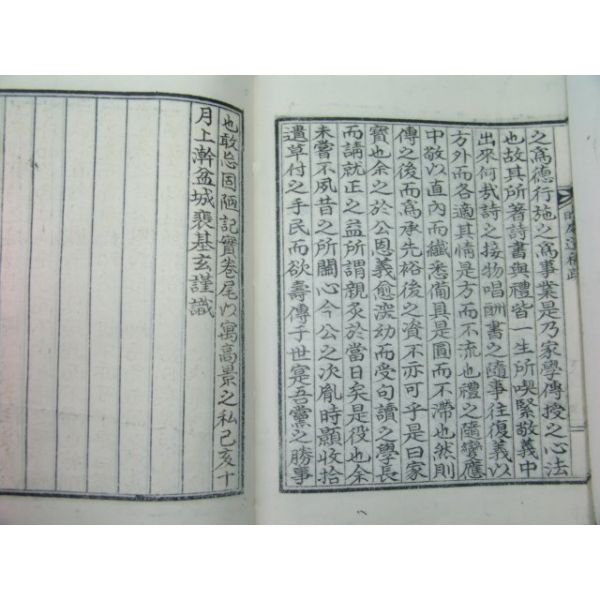 之爲德行施之爲事業是乃家學傳授之心法
也故其所著詩書與禮皆一生所喫緊敬義中
出來何㢤詩之接物唱酬書之隨事往復義以
方外而各適其情是方而不流也禮之隨變應
中敬以直內而纖悉備具是圓而不滯也然則
傳之後而爲承先裕後之資不亦可乎是曰家
寶也余之於公恩義愈深幼而受句讀之學長
而請就正之益所謂親炙於當日矣是役也余
未嘗不夙昔之所關心今公之次胤時顯收拾
遺草付之手民而欲壽傳于世寔吾黨之勝事
也敢忘固陋記實卷尾以寓高景之私己亥十
月上澣盆城裵基玄謹識